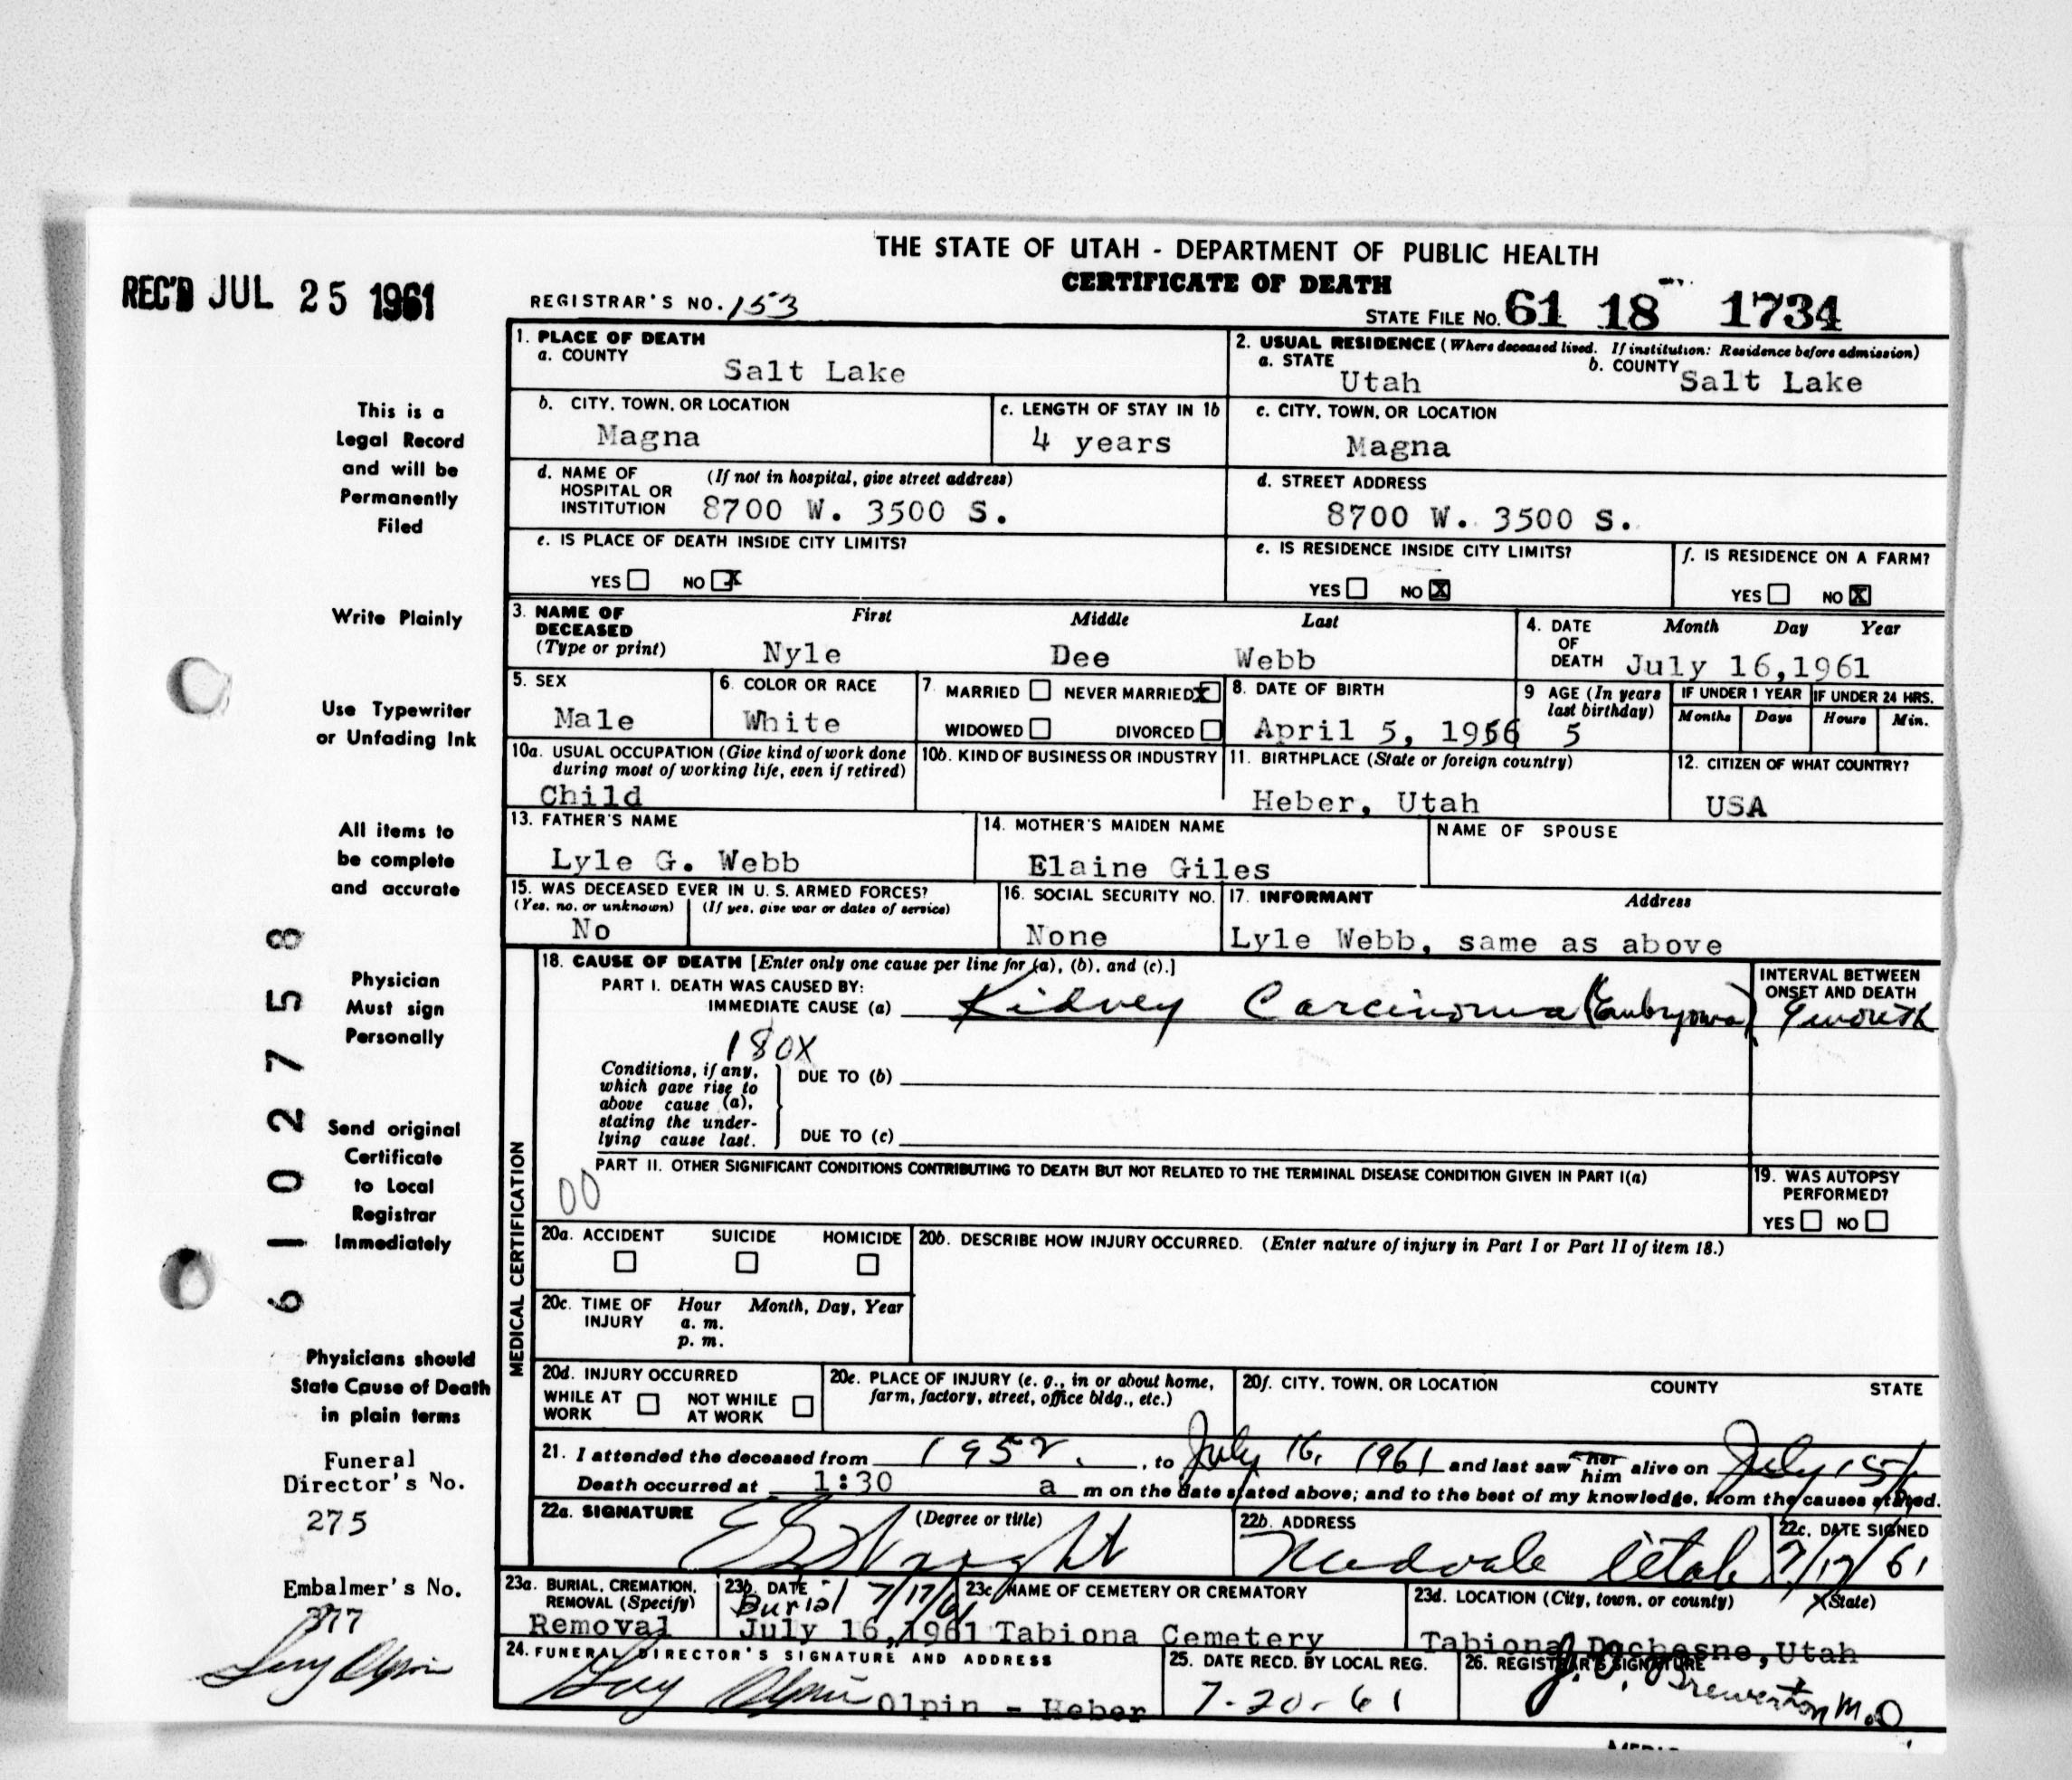 THE STATE OF UTAH - DEPARTMENT OF PUBLIC HEALTH
CERTIFICATE OF DEATH
REC'D JUL 25 1961
REGISTRAR'S NO. 153
STATE FILE NO. 61 18 1734
This is a
Legal Record
and will be
Permanently
Filed
Write Plainly
Use Typewriter
or Unfading Ink
All items to
be complete
and accurate
Physician
Must sign
Personally
Send original
Certificate
to Local
Registrar
Immediately
Physicians should
State Cause of Death
in plain terms
Funeral
Director's No.
275
Embalmer's No.
377
6102758
1. PLACE OF DEATH
a. COUNTY
Salt Lake
2. USUAL RESIDENCE (Where deceased lived. If institution: Residence before admission)
a. STATE b. COUNTY
Utah Salt Lake
b. CITY, TOWN, OR LOCATION
Magna
c. LENGTH OF STAY IN 1b
4 years
c. CITY, TOWN, OR LOCATION
Magna
d. NAME OF (If not in hospital, give street address)
HOSPITAL OR
INSTITUTION 8700 W. 3500 S.
d. STREET ADDRESS
8700 W. 3500 S.
e. IS PLACE OF DEATH INSIDE CITY LIMITS?
YES NO X
e. IS RESIDENCE INSIDE CITY LIMITS?
YES NO X
f. IS RESIDENCE ON A FARM?
YES NO X
3. NAME OF First Middle Last
DECEASED
(Type or print) Nyle Dee Webb
4. DATE Month Day Year
OF
DEATH July 16,1961
5. SEX
Male
6. COLOR OR RACE
White
7. MARRIED NEVER MARRIED X
WIDOWED DIVORCED
8. DATE OF BIRTH
April 5, 1956
9 AGE (In years
last birthday)
5
IF UNDER 1 YEAR IF UNDER 24 HRS.
Months Days Hours Min.
10a. USUAL OCCUPATION (Give kind of work done
during most of working life, even if retired)
Child
10b. KIND OF BUSINESS OR INDUSTRY
11. BIRTHPLACE (State or foreign country)
Heber, Utah
12. CITIZEN OF WHAT COUNTRY?
USA
13. FATHER'S NAME
Lyle G. Webb
14. MOTHER'S MAIDEN NAME
Elaine Giles
NAME OF SPOUSE
15. WAS DECEASED EVER IN U. S. ARMED FORCES?
(Yes, no, or unknown) (If yes, give war or dates of service)
No
16. SOCIAL SECURITY NO.
None
17. INFORMANT Address
Lyle Webb, same as above
MEDICAL CERTIFICATION
18. CAUSE OF DEATH [Enter only one cause per line for (a), (b), and (c).]
PART I. DEATH WAS CAUSED BY:
IMMEDIATE CAUSE (a) Kidney Carcinoma (Embryoma)
INTERVAL BETWEEN
ONSET AND DEATH
9 month
180X
Conditions, if any,
which gave rise to
above cause (a),
stating the under-
lying cause last.
DUE TO (b)
DUE TO (c)
PART II. OTHER SIGNIFICANT CONDITIONS CONTRIBUTING TO DEATH BUT NOT RELATED TO THE TERMINAL DISEASE CONDITION GIVEN IN PART I(a)
00
19. WAS AUTOPSY
PERFORMED?
YES NO
20a. ACCIDENT SUICIDE HOMICIDE
20b. DESCRIBE HOW INJURY OCCURRED. (Enter nature of injury in Part I or Part II of item 18.)
20c. TIME OF Hour Month, Day, Year
INJURY a. m.
p. m.
20d. INJURY OCCURRED
WHILE AT NOT WHILE
WORK AT WORK
20e. PLACE OF INJURY (e. g., in or about home,
farm, factory, street, office bldg., etc.)
20f. CITY, TOWN, OR LOCATION COUNTY STATE
21. I attended the deceased from 1952, to July 16, 1961 and last saw her him alive on July 15/
Death occurred at 1:30 a m on the date stated above; and to the best of my knowledge, from the causes stated.
22a. SIGNATURE (Degree or title)
22b. ADDRESS
Midvale Utah
22c. DATE SIGNED
7/17/61
23a. BURIAL, CREMATION,
REMOVAL (Specify)
Removal
23b. DATE
Burial 7/17/61
July 16,1961
23c. NAME OF CEMETERY OR CREMATORY
Tabiona Cemetery
23d. LOCATION (City, town, or county) (State)
Tabiona, Duchesne, Utah
24. FUNERAL DIRECTOR'S SIGNATURE AND ADDRESS
Olpin - Heber
25. DATE RECD. BY LOCAL REG.
7-20-61
26. REGISTRAR'S SIGNATURE
Brewerton M.D